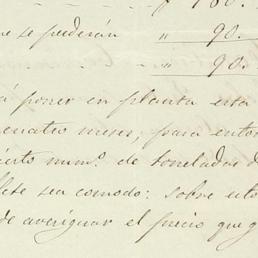 180.
ne se perderán " 90.
" 90.
á poner en planta esta
cuatro meses, para enton
cierto num.º de toneladas d
flete sea comodo: sobre esto
de averiguar el precio que g